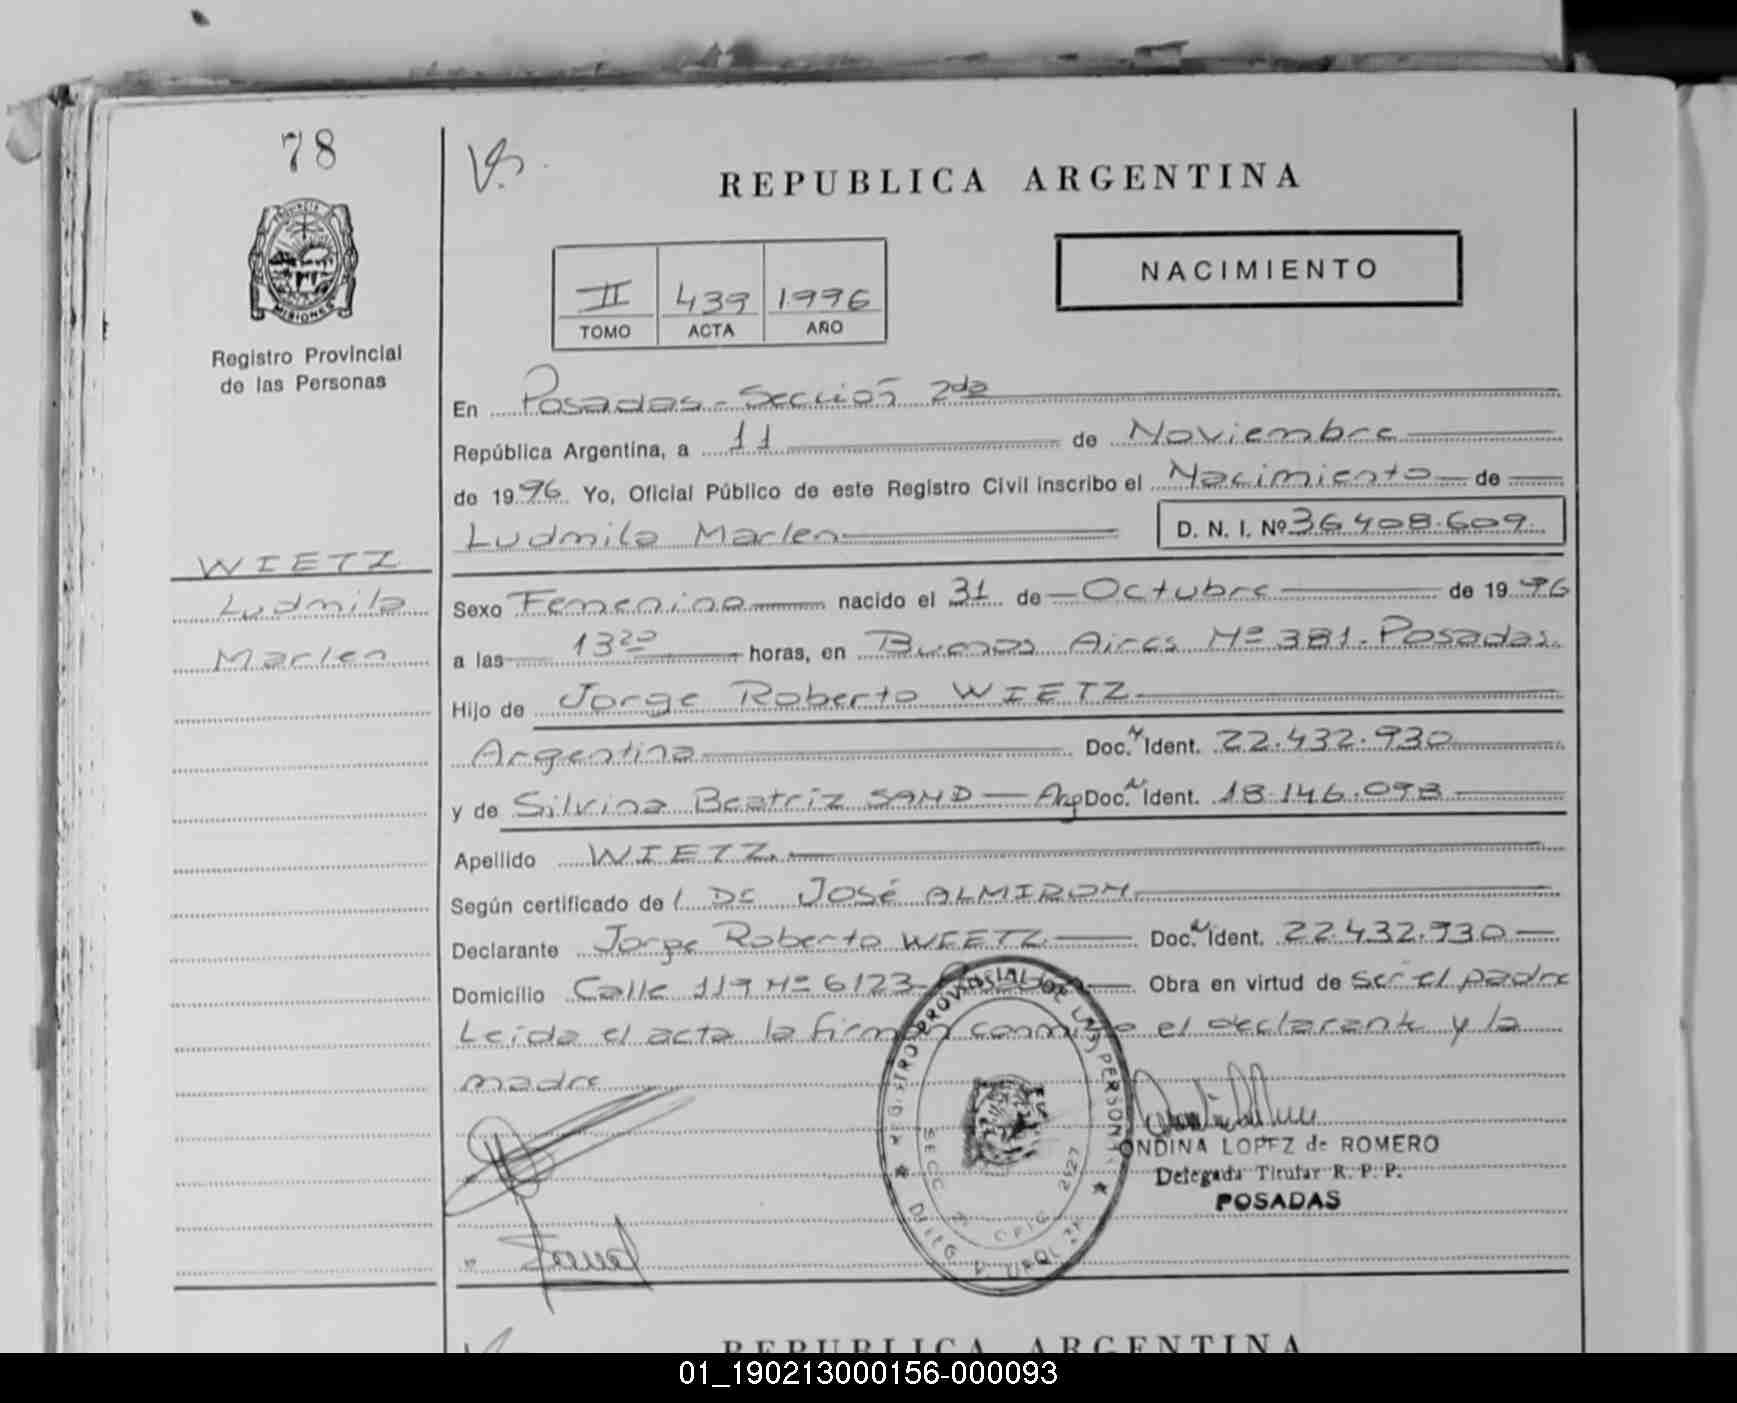 78
V.
REPUBLICA ARGENTINA
PROVINCIA DE
MISIONES
NACIMIENTO
II 439 1996
TOMO ACTA AÑO
Registro Provincial
de las Personas
En Posadas - Sección 2da
República Argentina, a 11 de Noviembre
de 1996 Yo, Oficial Público de este Registro Civil inscribo el Nacimiento de
Ludmila Marlen D. N. I. Nº 36.408.609
WIETZ
Ludmila
Marlen
Sexo Femenino nacido el 31 de Octubre de 1996
a las 13 20 horas, en Buenos Aires Nº 381. Posadas.
Hijo de Jorge Roberto WIETZ
Argentina Doc. N Ident. 22.432.930
y de Silvina Beatriz SAND - Arg Doc. N Ident. 18.146.098
Apellido WIETZ.
Según certificado de l Dr José ALMIRON.
Declarante Jorge Roberto WIETZ Doc. N Ident. 22.432.930
Domicilio Calle 119 Nº 6123 - Posadas Obra en virtud de ser el padre
Leída el acta la firman conmigo el declarante y la
madre
REGISTRO PROVINCIAL DE LAS PERSONAS
SECC
ONDINA LOPEZ de ROMERO
Delegada Titular R. P. P.
POSADAS
REPUBLICA ARGENTINA
01_190213000156-000093